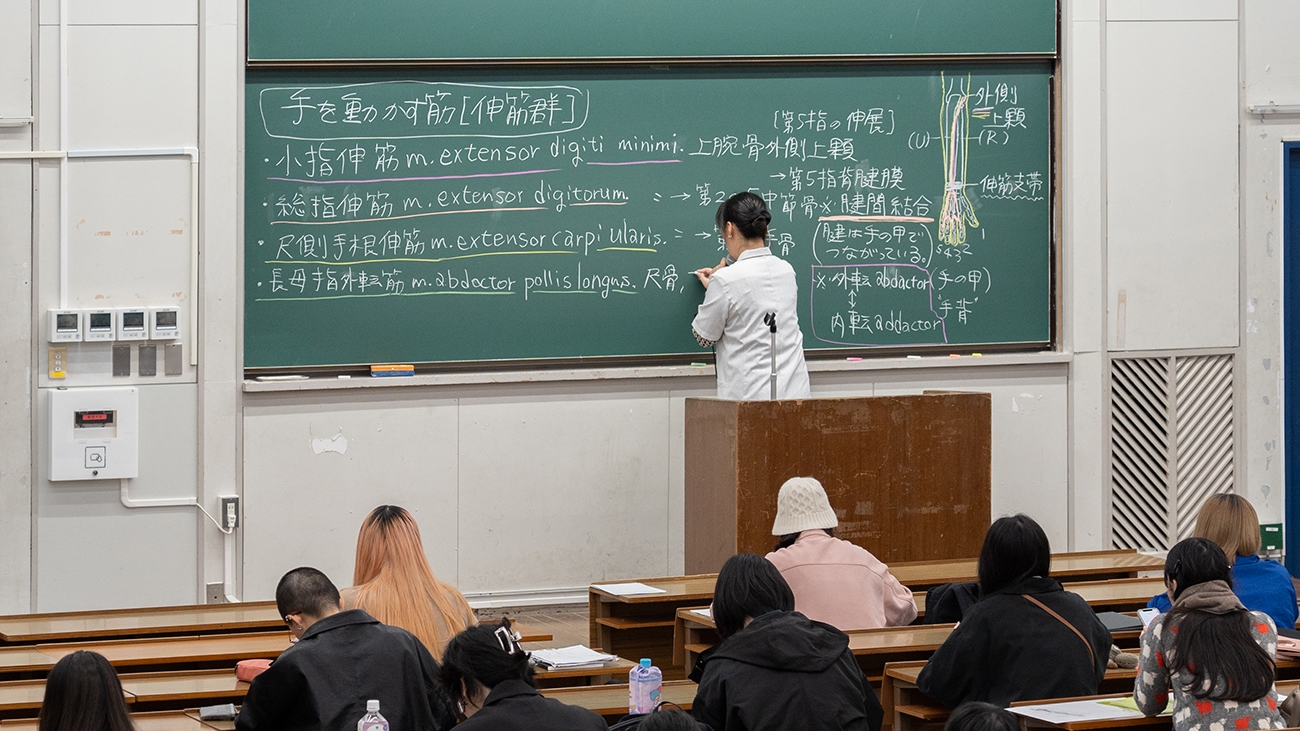 手を動かす筋[伸筋群]
・小指伸筋 m.extensor digiti minimi. 上腕骨外側上顆
[第5指の伸展]
→第5指背腱膜
・総指伸筋 m.extensor digitorum. = →第2 5中節骨
・尺側手根伸筋 m.extensor carpi ularis. = → 手骨
・長母指外転筋 m.abdactor pollis longus. 尺骨,
※腱間結合
(腱は手の甲で
つながっている。)
※外転 abdactor
↕
内転 addactor
(手の甲)
"手背"
外側
上顆
(U)
(R)
伸筋支帯
5 4 3 2 1